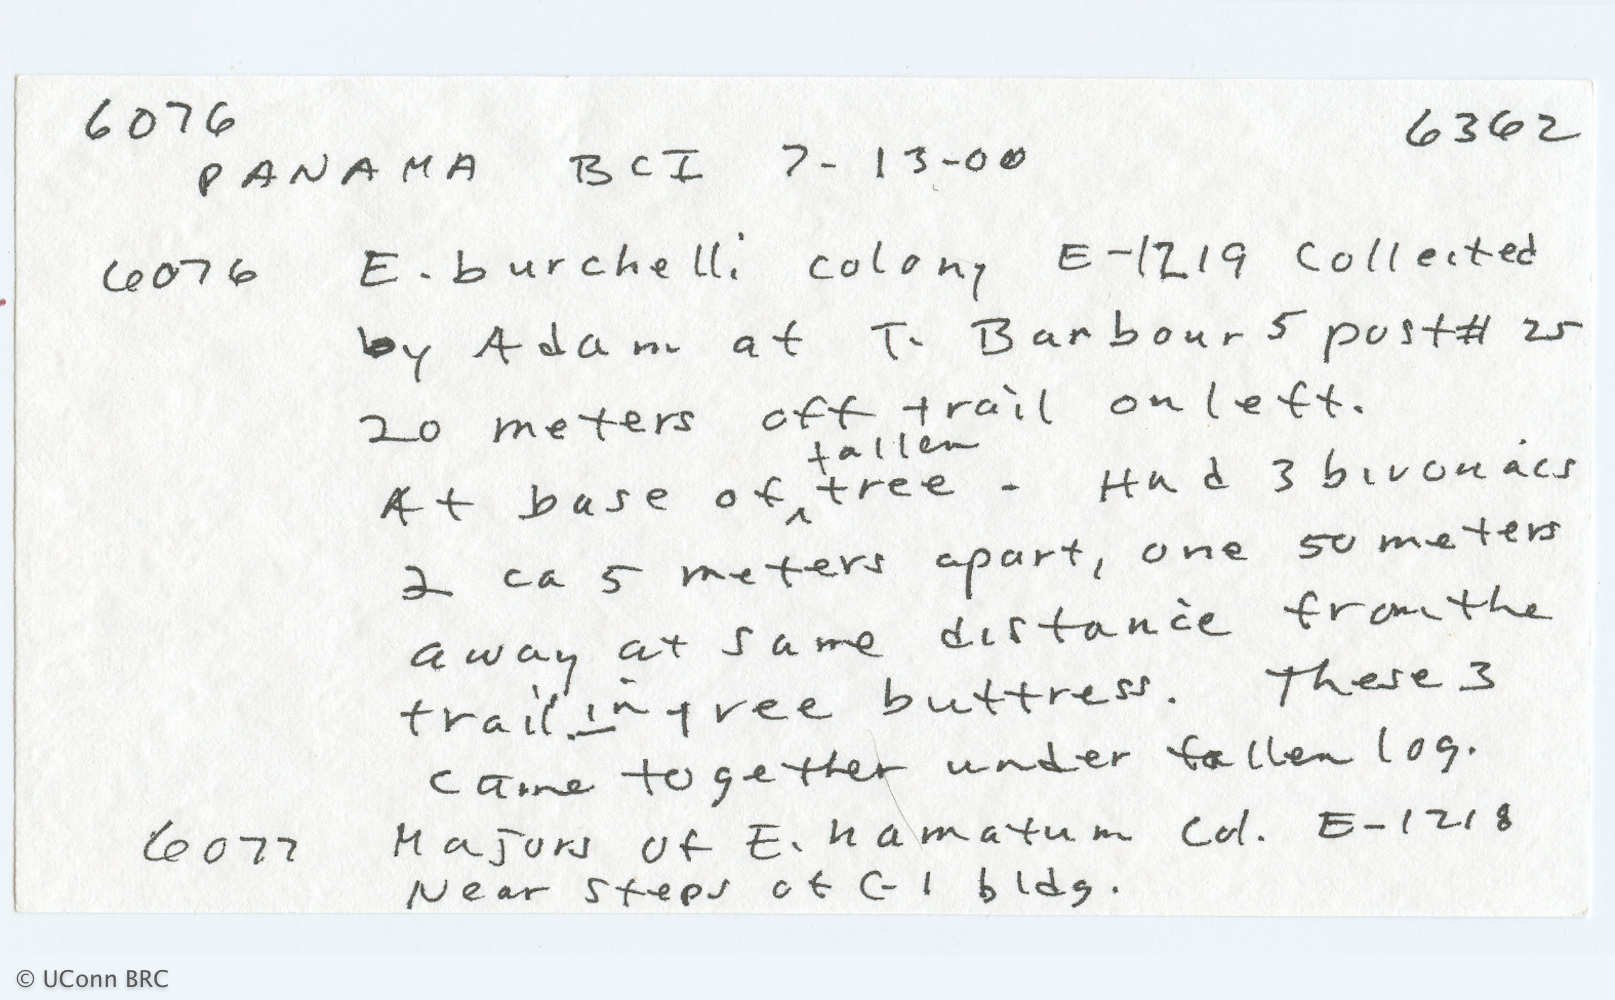 6076
6362
PANAMA BCI 7-13-00
6076 E. burchelli colony E-1219 Collected
by Adam at T. Barbour 5 post# 25
20 meters off trail on left.
At base of fallen tree - Had 3 bivouacs
2 ca 5 meters apart, one 50 meters
away at same distance from the
trail in tree buttress. These 3
came together under fallen log.
6077 Majors of E. hamatum Col. E-1218
Near steps at C-1 bldg.
© UConn BRC